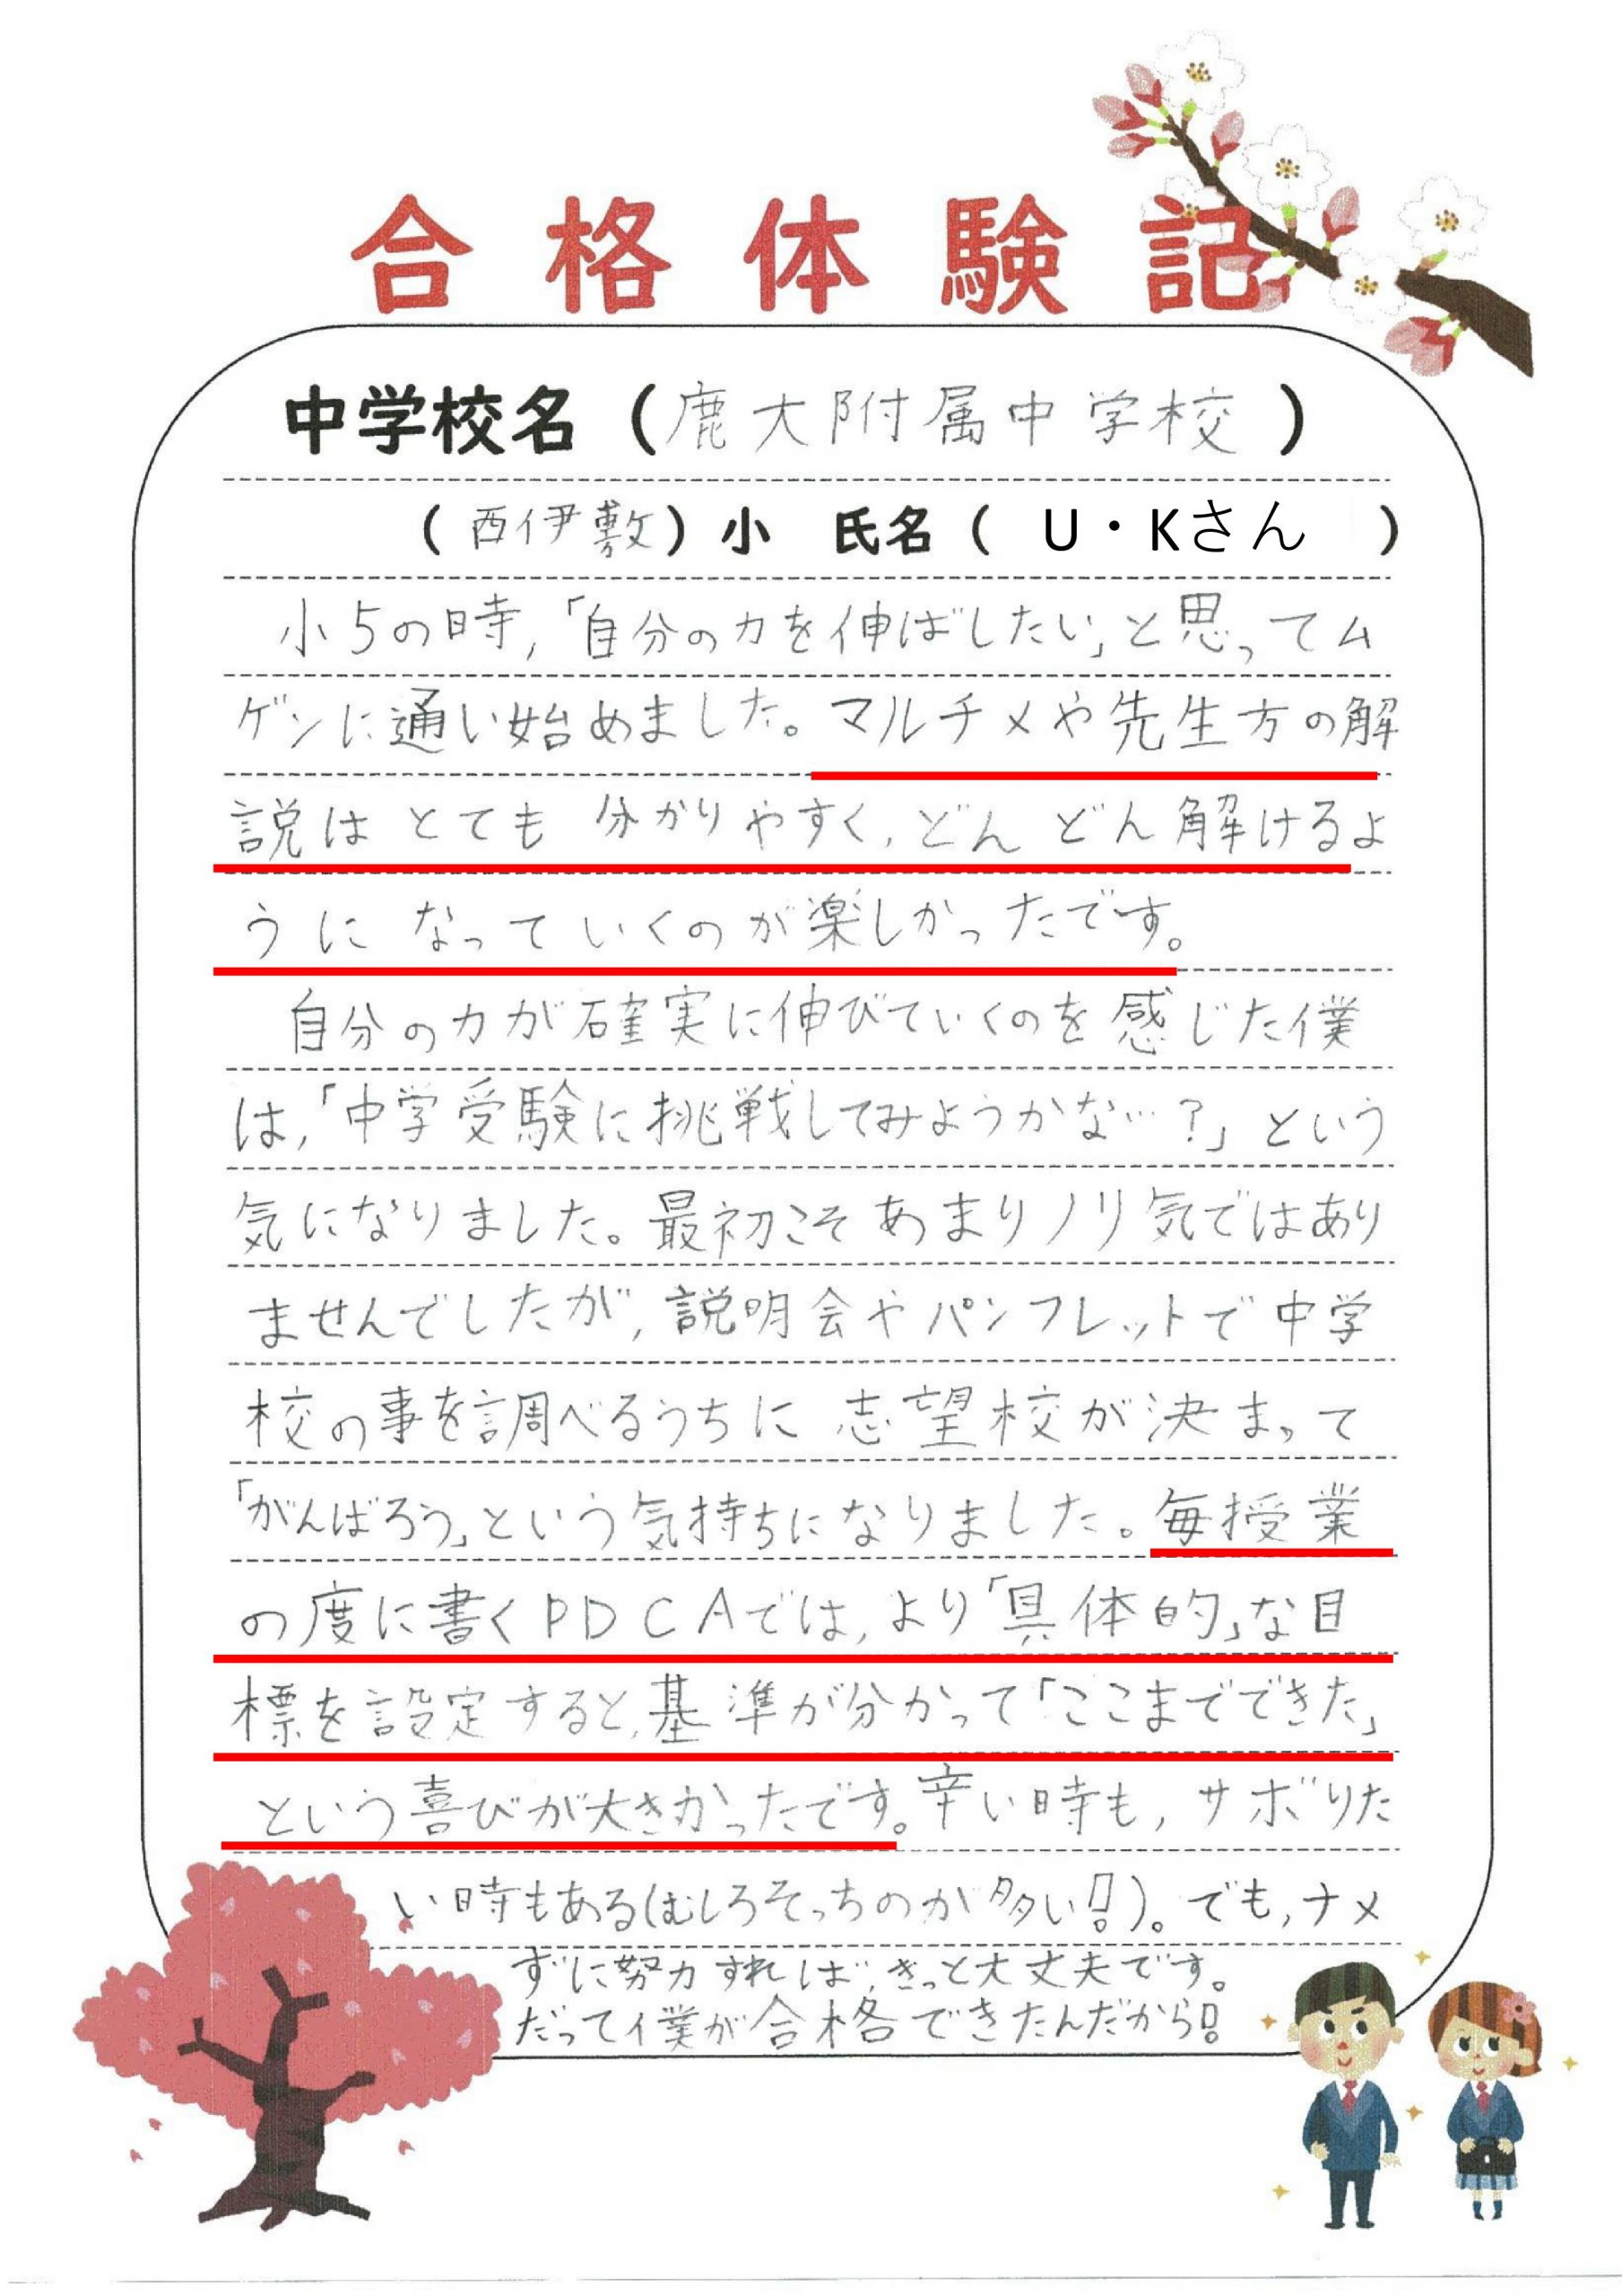 合格体験記
中学校名（鹿大附属中学校）
（西伊敷）小　氏名（　U・Kさん　）
小5の時,「自分の力を伸ばしたい」と思ってム
ゲンに通い始めました。マルチメや先生方の解
説はとても分かりやすく,どんどん解けるよ
うになっていくのが楽しかったです。
自分の力が確実に伸びていくのを感じた僕
は,「中学受験に挑戦してみようかな…？」という
気になりました。最初こそあまりノリ気ではあり
ませんでしたが,説明会やパンフレットで中学
校の事を調べるうちに志望校が決まって
「がんばろう」という気持ちになりました。毎授業
の度に書くPDCAでは,より「具体的」な目
標を設定すると,基準が分かって「ここまでできた」
という喜びが大きかったです。辛い時も,サボりた
い時もある(むしろそっちのが多い!!)。でも,ナメ
ずに努力すれば,きっと大丈夫です。
だって僕が合格できたんだから!!